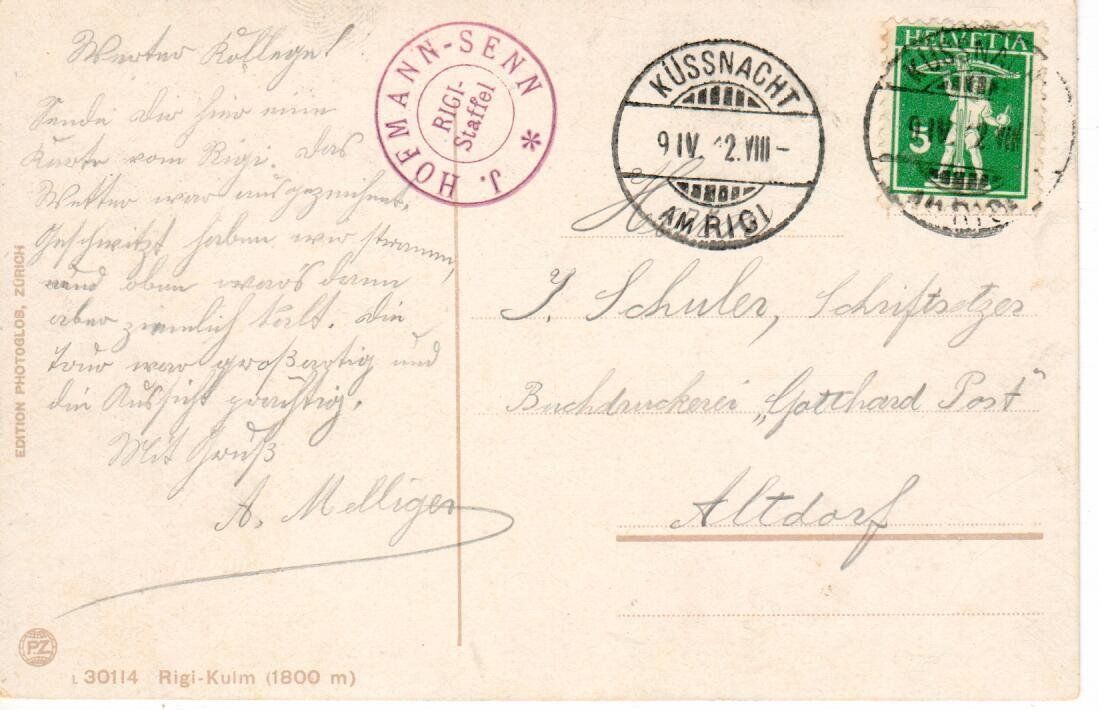 Werter Kollege!
Sende dir hier eine
Karte vom Rigi. Das
Wetter war ausgezeichnet.
Geschwitzt haben wir stramm,
und oben war's dann
aber ziemlich kalt. Die
Tour war großartig und
die Aussicht prächtig.
Mit Gruß
A. Melliger
J. HOFMANN-SENN *
RIGI-
Staffel
KÜSSNACHT
9 IV 12.VIII-
AM RIGI
HELVETIA
5
KÜSSNACHT
9 IV 12 VIII
AM RIGI
J. Schuler, Schriftsetzer
Buchdruckerei „Gotthard Post"
Altdorf
EDITION PHOTOGLOB, ZÜRICH
PZ
L 30114 Rigi-Kulm (1800 m)